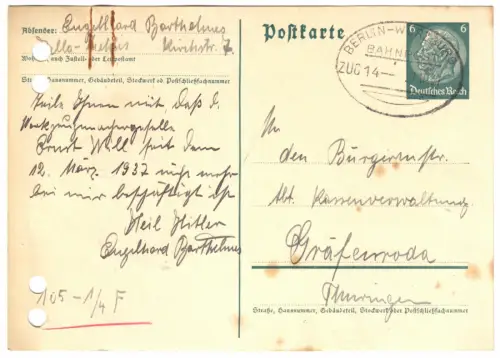 Absender: Engelhard Barthelmes
Zella-Mehlis
Wohnort, auch Zustell- oder Leitpostamt
Straße, Hausnummer, Gebäudeteil, Stockwerk od. Postschließfachnummer
teile Ihnen mit daß d.
Werkzeugmachergeselle
Ernst Will seit dem
12. März. 1937 nicht mehr
bei mir beschäftigt ist
Heil Hitler
Engelhard Barthelmes
105-1/4 F
Postkarte
6 6
Deutsches Reich
BERLIN-W
BAHN
ZUG 14
An
den Bürgermstr.
Abt. Kassenverwaltung
Gräfenroda
Thüringen
Straße, Hausnummer, Gebäudeteil, Stockwerk oder Postschließfachnummer